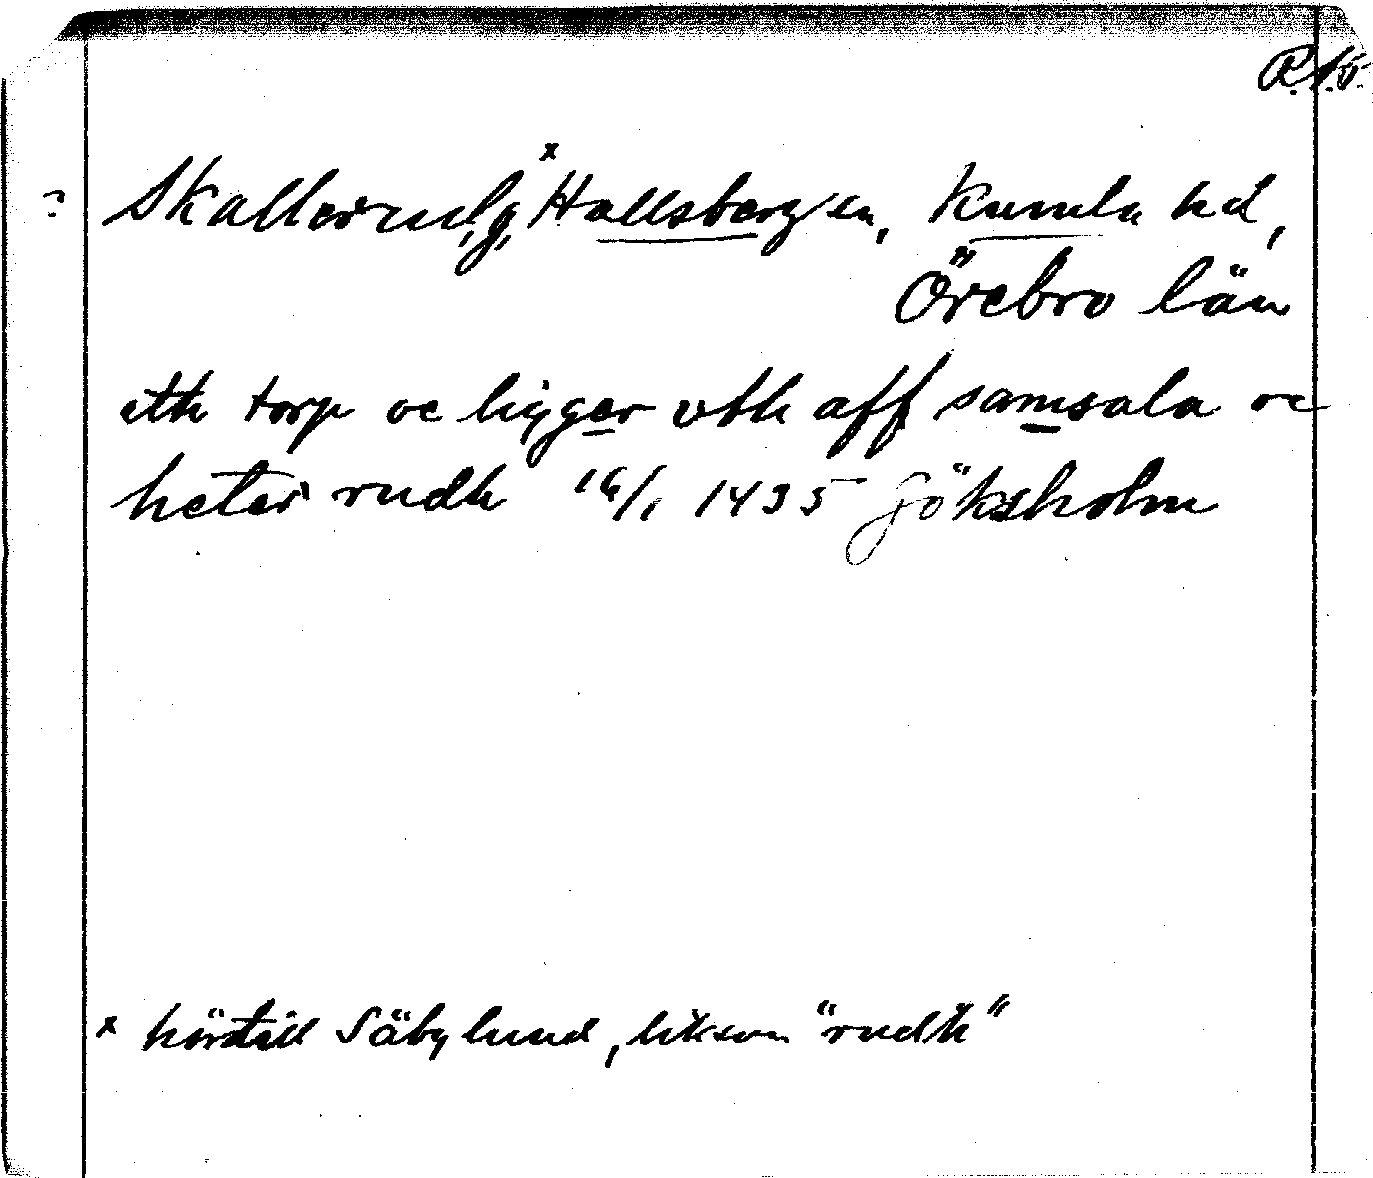 R.K.
? Skallerud, g, x Hallsberg sn, Kumla hd,
Örebro län
eth torp oc ligger vth aff samsala oc
heter rudh 16/1 1435 Göksholm
x hört till Säbylund, liksom "rudh"